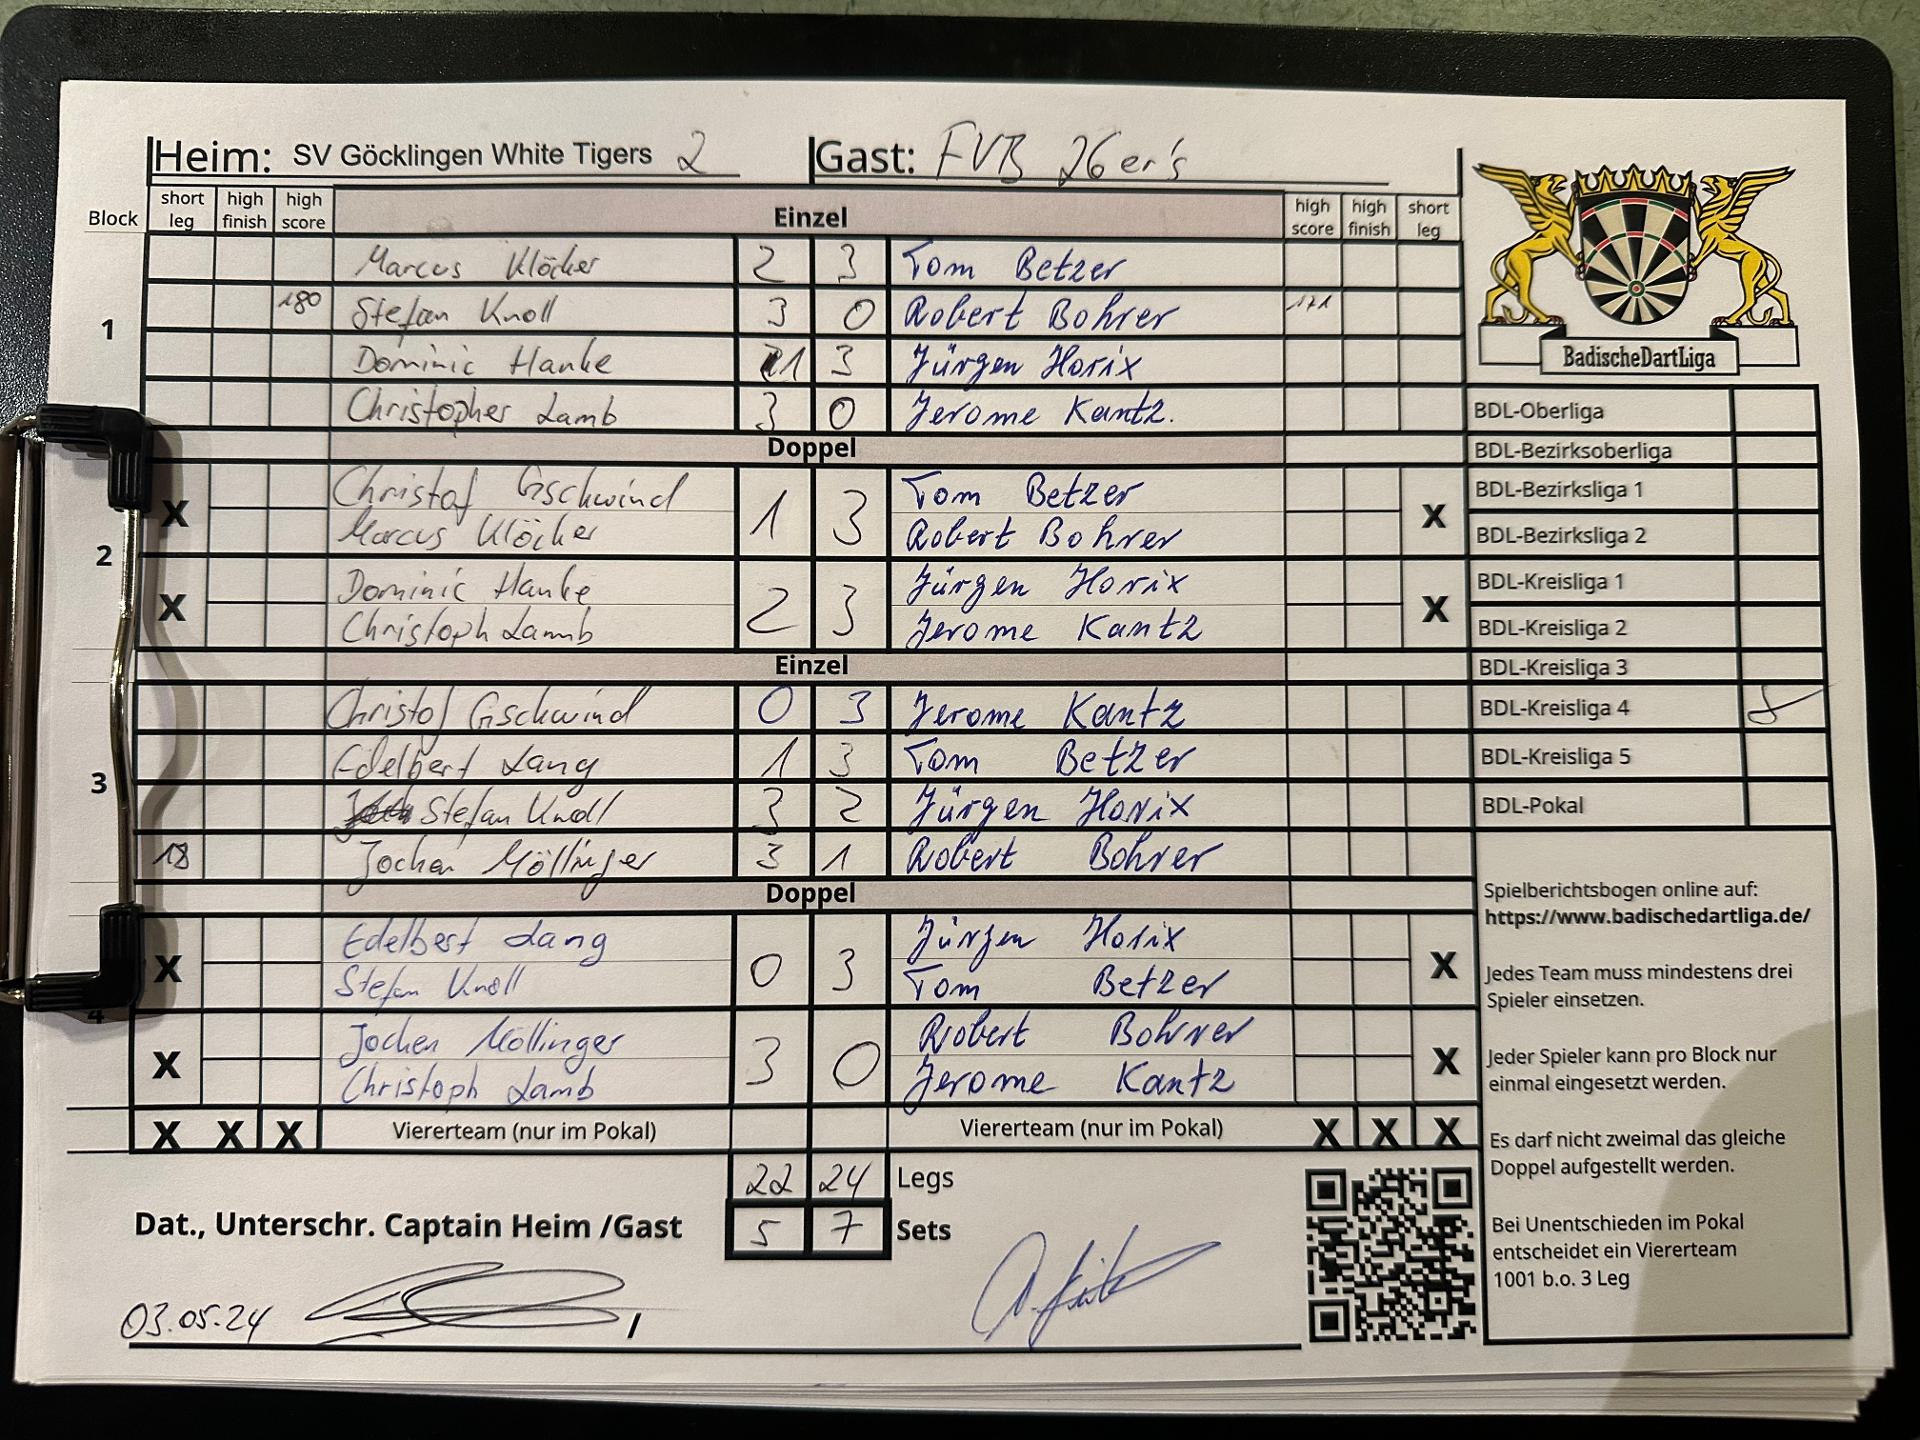 Heim: SV Göcklingen White Tigers 2 Gast: FVB 26er's
Block short leg high finish high score Einzel high score high finish short leg
1
Marcus Klöcker 2 3 Tom Betzer
180 Stefan Knoll 3 0 Robert Bohrer 171
Dominic Hanke 1 3 Jürgen Horix
Christopher Lamb 3 0 Jerome Kantz.
Doppel
2
X Christof Gschwind 1 3 Tom Betzer X
Marcus Klöcker Robert Bohrer
X Dominic Hanke 2 3 Jürgen Horix X
Christoph Lamb Jerome Kantz
Einzel
3
Christof Gschwind 0 3 Jerome Kantz
Edelbert Lang 1 3 Tom Betzer
Stefan Knoll 3 2 Jürgen Horix
18 Jochen Möllinger 3 1 Robert Bohrer
Doppel
4
X Edelbert Lang 0 3 Jürgen Horix X
Stefan Knoll Tom Betzer
X Jochen Möllinger 3 0 Robert Bohrer X
Christoph Lamb Jerome Kantz
X X X Viererteam (nur im Pokal) Viererteam (nur im Pokal) X X X
22 24 Legs
Dat., Unterschr. Captain Heim /Gast 5 7 Sets
03.05.24 /
BadischeDartLiga
BDL-Oberliga
BDL-Bezirksoberliga
BDL-Bezirksliga 1
BDL-Bezirksliga 2
BDL-Kreisliga 1
BDL-Kreisliga 2
BDL-Kreisliga 3
BDL-Kreisliga 4
BDL-Kreisliga 5
BDL-Pokal
Spielberichtsbogen online auf:
https://www.badischedartliga.de/
Jedes Team muss mindestens drei
Spieler einsetzen.
Jeder Spieler kann pro Block nur
einmal eingesetzt werden.
Es darf nicht zweimal das gleiche
Doppel aufgestellt werden.
Bei Unentschieden im Pokal
entscheidet ein Viererteam
1001 b.o. 3 Leg